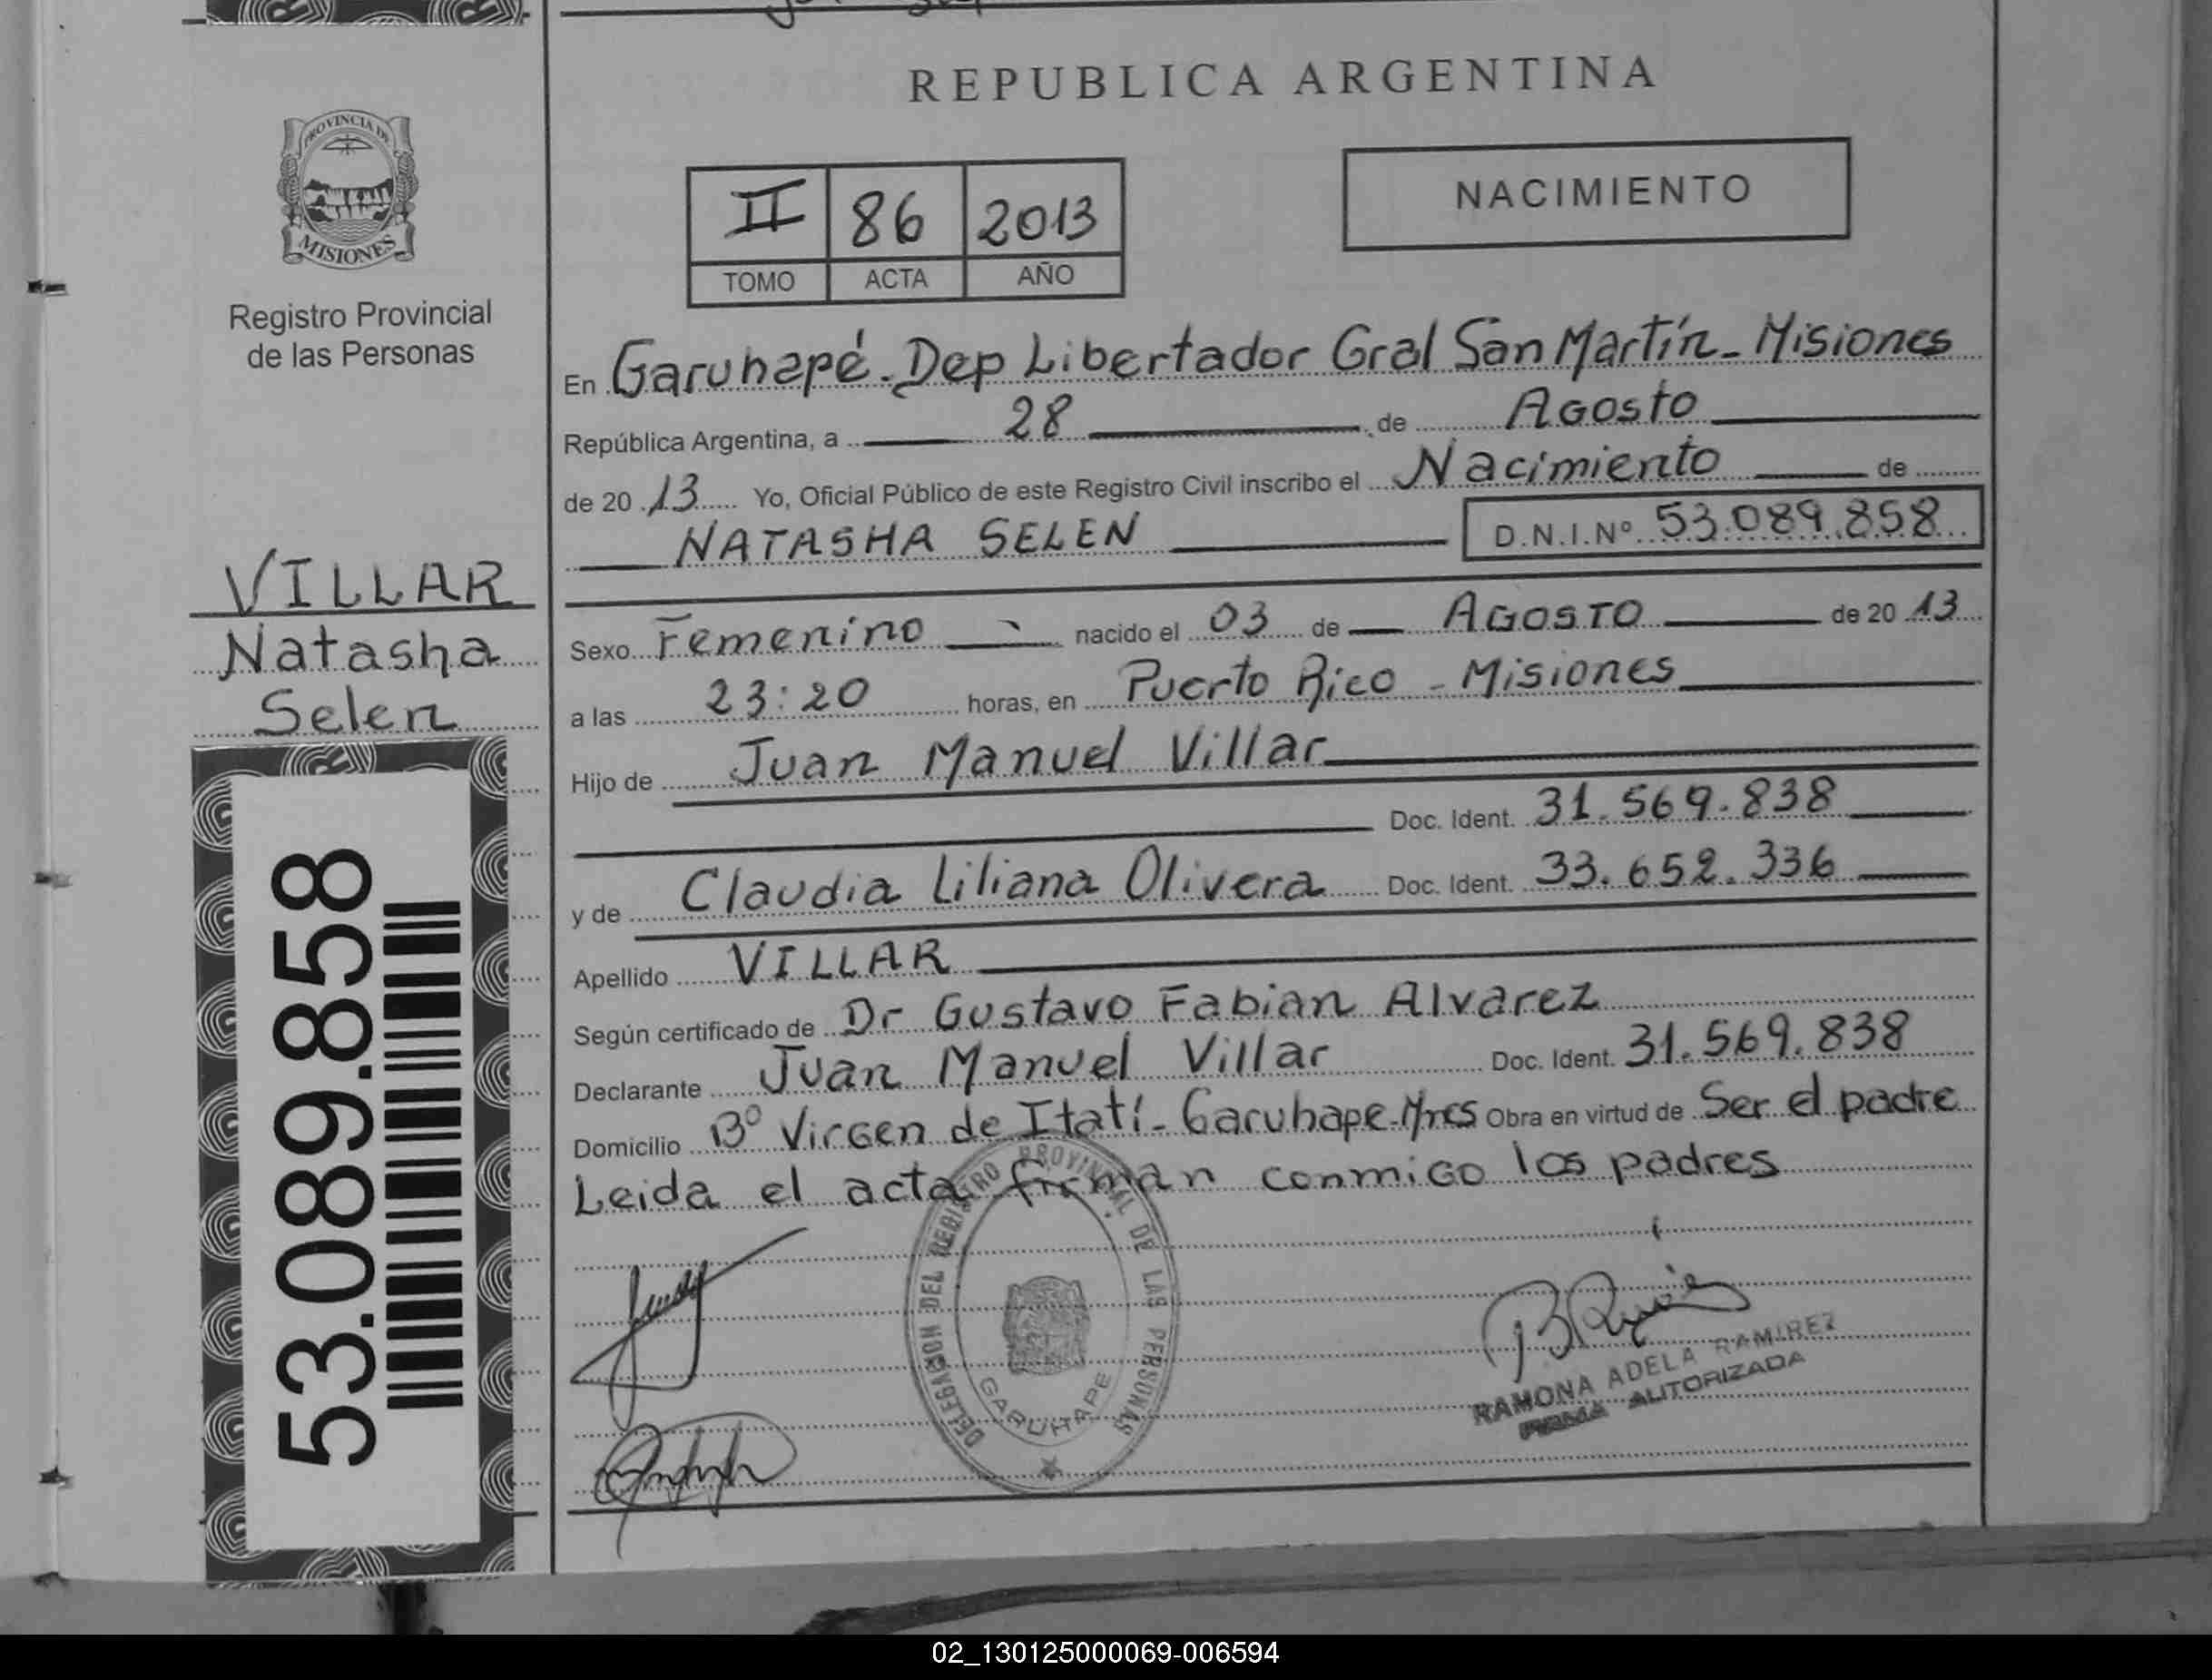 REPUBLICA ARGENTINA
PROVINCIA DE
MISIONES
Registro Provincial
de las Personas
NACIMIENTO
II 86 2013
TOMO ACTA AÑO
En Garuhapé - Dep Libertador Gral San Martín - Misiones
República Argentina, a 28 de Agosto
de 20 13 Yo, Oficial Público de este Registro Civil inscribo el Nacimiento de
NATASHA SELEN D.N.I.Nº 53.089.858
VILLAR
Natasha
Selen
Sexo Femenino nacido el 03 de AGOSTO de 20 13
a las 23:20 horas, en Puerto Rico - Misiones
Hijo de Juan Manuel Villar
Doc. Ident. 31.569.838
y de Claudia Liliana Olivera Doc. Ident. 33.652.336
Apellido VILLAR
Según certificado de Dr Gustavo Fabian Alvarez
Declarante Juan Manuel Villar Doc. Ident. 31.569.838
Domicilio Bº Virgen de Itatí - Garuhape - Mnes Obra en virtud de Ser el padre
Leida el acta firman conmigo los padres
53.089.858
DELEGACION DEL REGISTRO PROVINCIAL DE LAS PERSONAS
GARUHAPE
RAMONA ADELA RAMIREZ
FIRMA AUTORIZADA
02_130125000069-006594